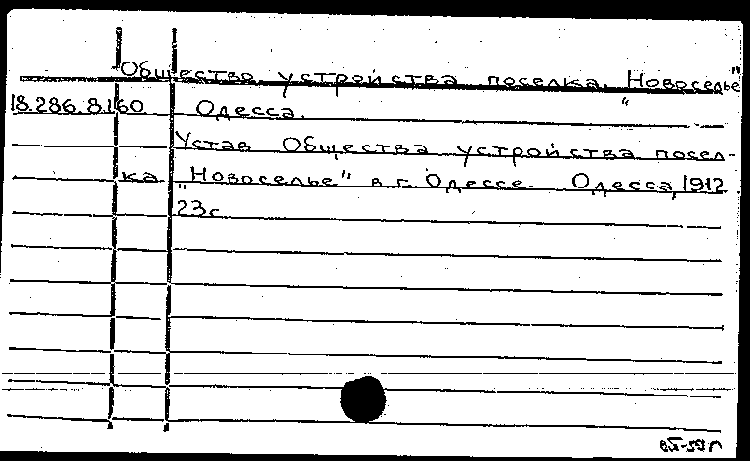 Общество устройства поселка „Новоселье"
18.286.8.160 Одесса.
Устав Общества устройства посел-
ка „Новоселье" в г. Одессе. Одесса, 1912
23с